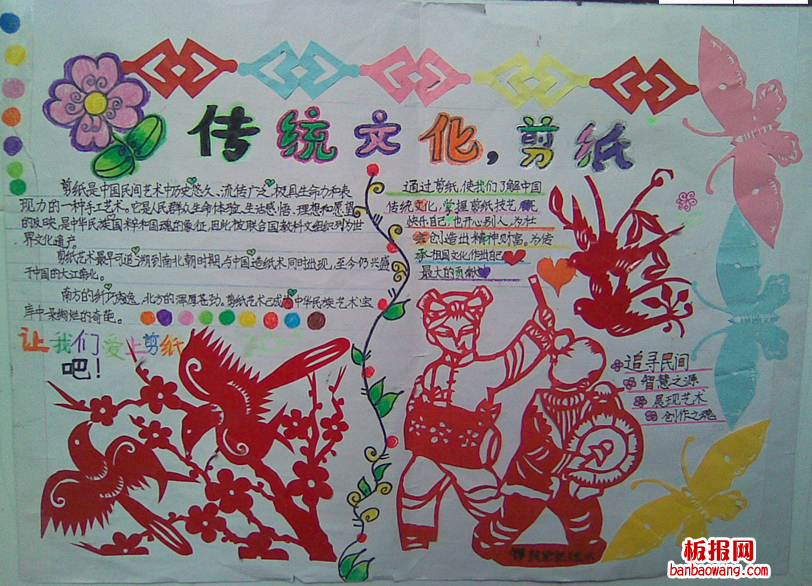 传统文化,剪纸
剪纸是中国民间艺术中历史悠久、流传广泛、极具生命力和表
现力的一种手工艺术。它是人民群众生命体验、生活感悟、理想和愿望
的反映,是中华民族国粹和国魂的象征,因此被联合国教科文组织列为世
界文化遗产。
剪纸艺术最早可追溯到南北朝时期,与中国造纸术同时出现,至今仍兴盛
于中国的大江南北。
南方的纤巧秀逸,北方的浑厚苍劲,剪纸艺术已成为中华民族艺术宝
库中最绚烂的奇葩。
让我们爱上剪纸
吧!
通过剪纸,使我们了解中国
传统文化,掌握剪纸技艺
自己,也开心别人,为社
会创造出精神财富。为传
承祖国文化作出自己
最大的贡献
追寻民间
智慧之源
展现艺术
创作之魂
板报网
banbaowang.com